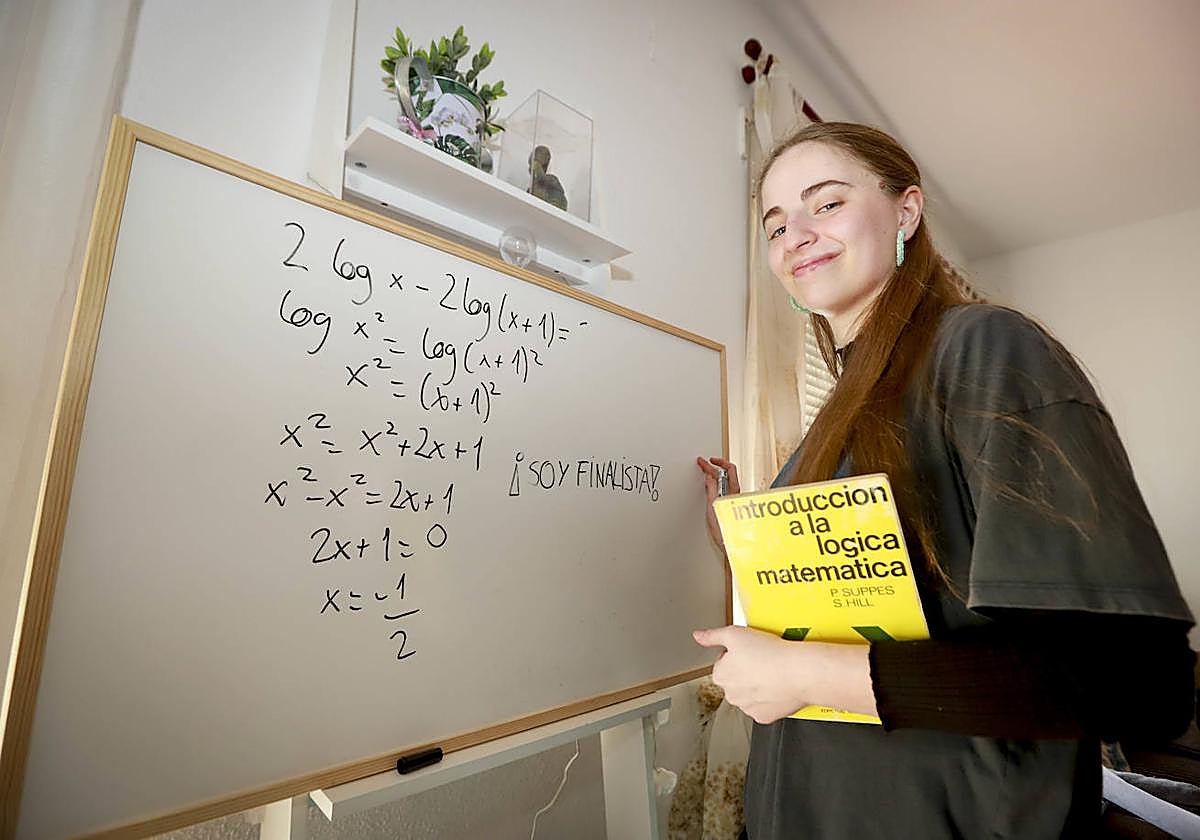 2 log x - 2 log(x+1) = -
log x² = log(x+1)²
x² = (x+1)²
x² = x²+2x+1
x²-x² = 2x+1
2x+1 = 0
x = -1
2
¡SOY FINALISTA!
introduccion
a la
logica
matematica
P. SUPPES
S. HILL